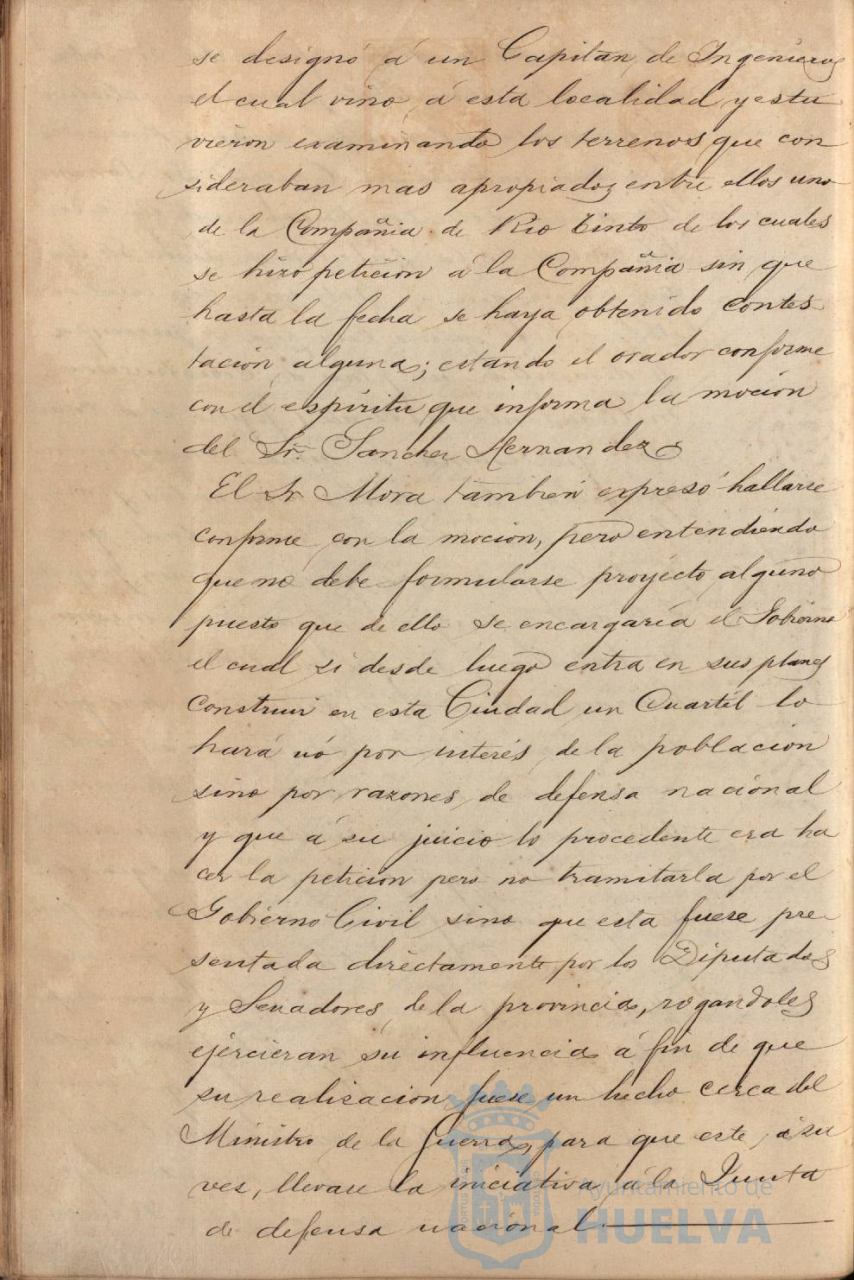 se designó á un Capitan de Ingenieros
el cual vino á esta localidad y estu
vieron examinando los terrenos que con
sideraban mas apropiados entre ellos uno
de la Compañia de Rio Tinto de los cuales
se hizo peticion á la Compañia sin que
hasta la fecha se haya obtenido contes
tación alguna; estando el orador conforme
con el espíritu que informa la moción
del Sr. Sanchez Hernandez
El Sr Mora tambien expresó hallarse
conforme con la mocion, pero entendiendo
que no debe formularse proyecto alguno
puesto que de ello se encargaría el Gobierno
el cual si desde luego entra en sus planes
construir en esta Ciudad un Cuartél lo
hará nó por interés de la poblacion
sino por razones de defensa nacional
y que á su juicio lo procedente era ha
cer la peticion pero no tramitarla por el
Gobierno Civil sino que esta fuese pre
sentada directamente por los Diputados
y Senadores de la provincia, rogandoles
ejercieran su influencia á fin de que
su realizacion fuese un hecho cerca del
Ministro de la Guerra, para que este, á su
ves, llevase la iniciativa á la Junta
de defensa nacional
Ayuntamiento de
HUELVA